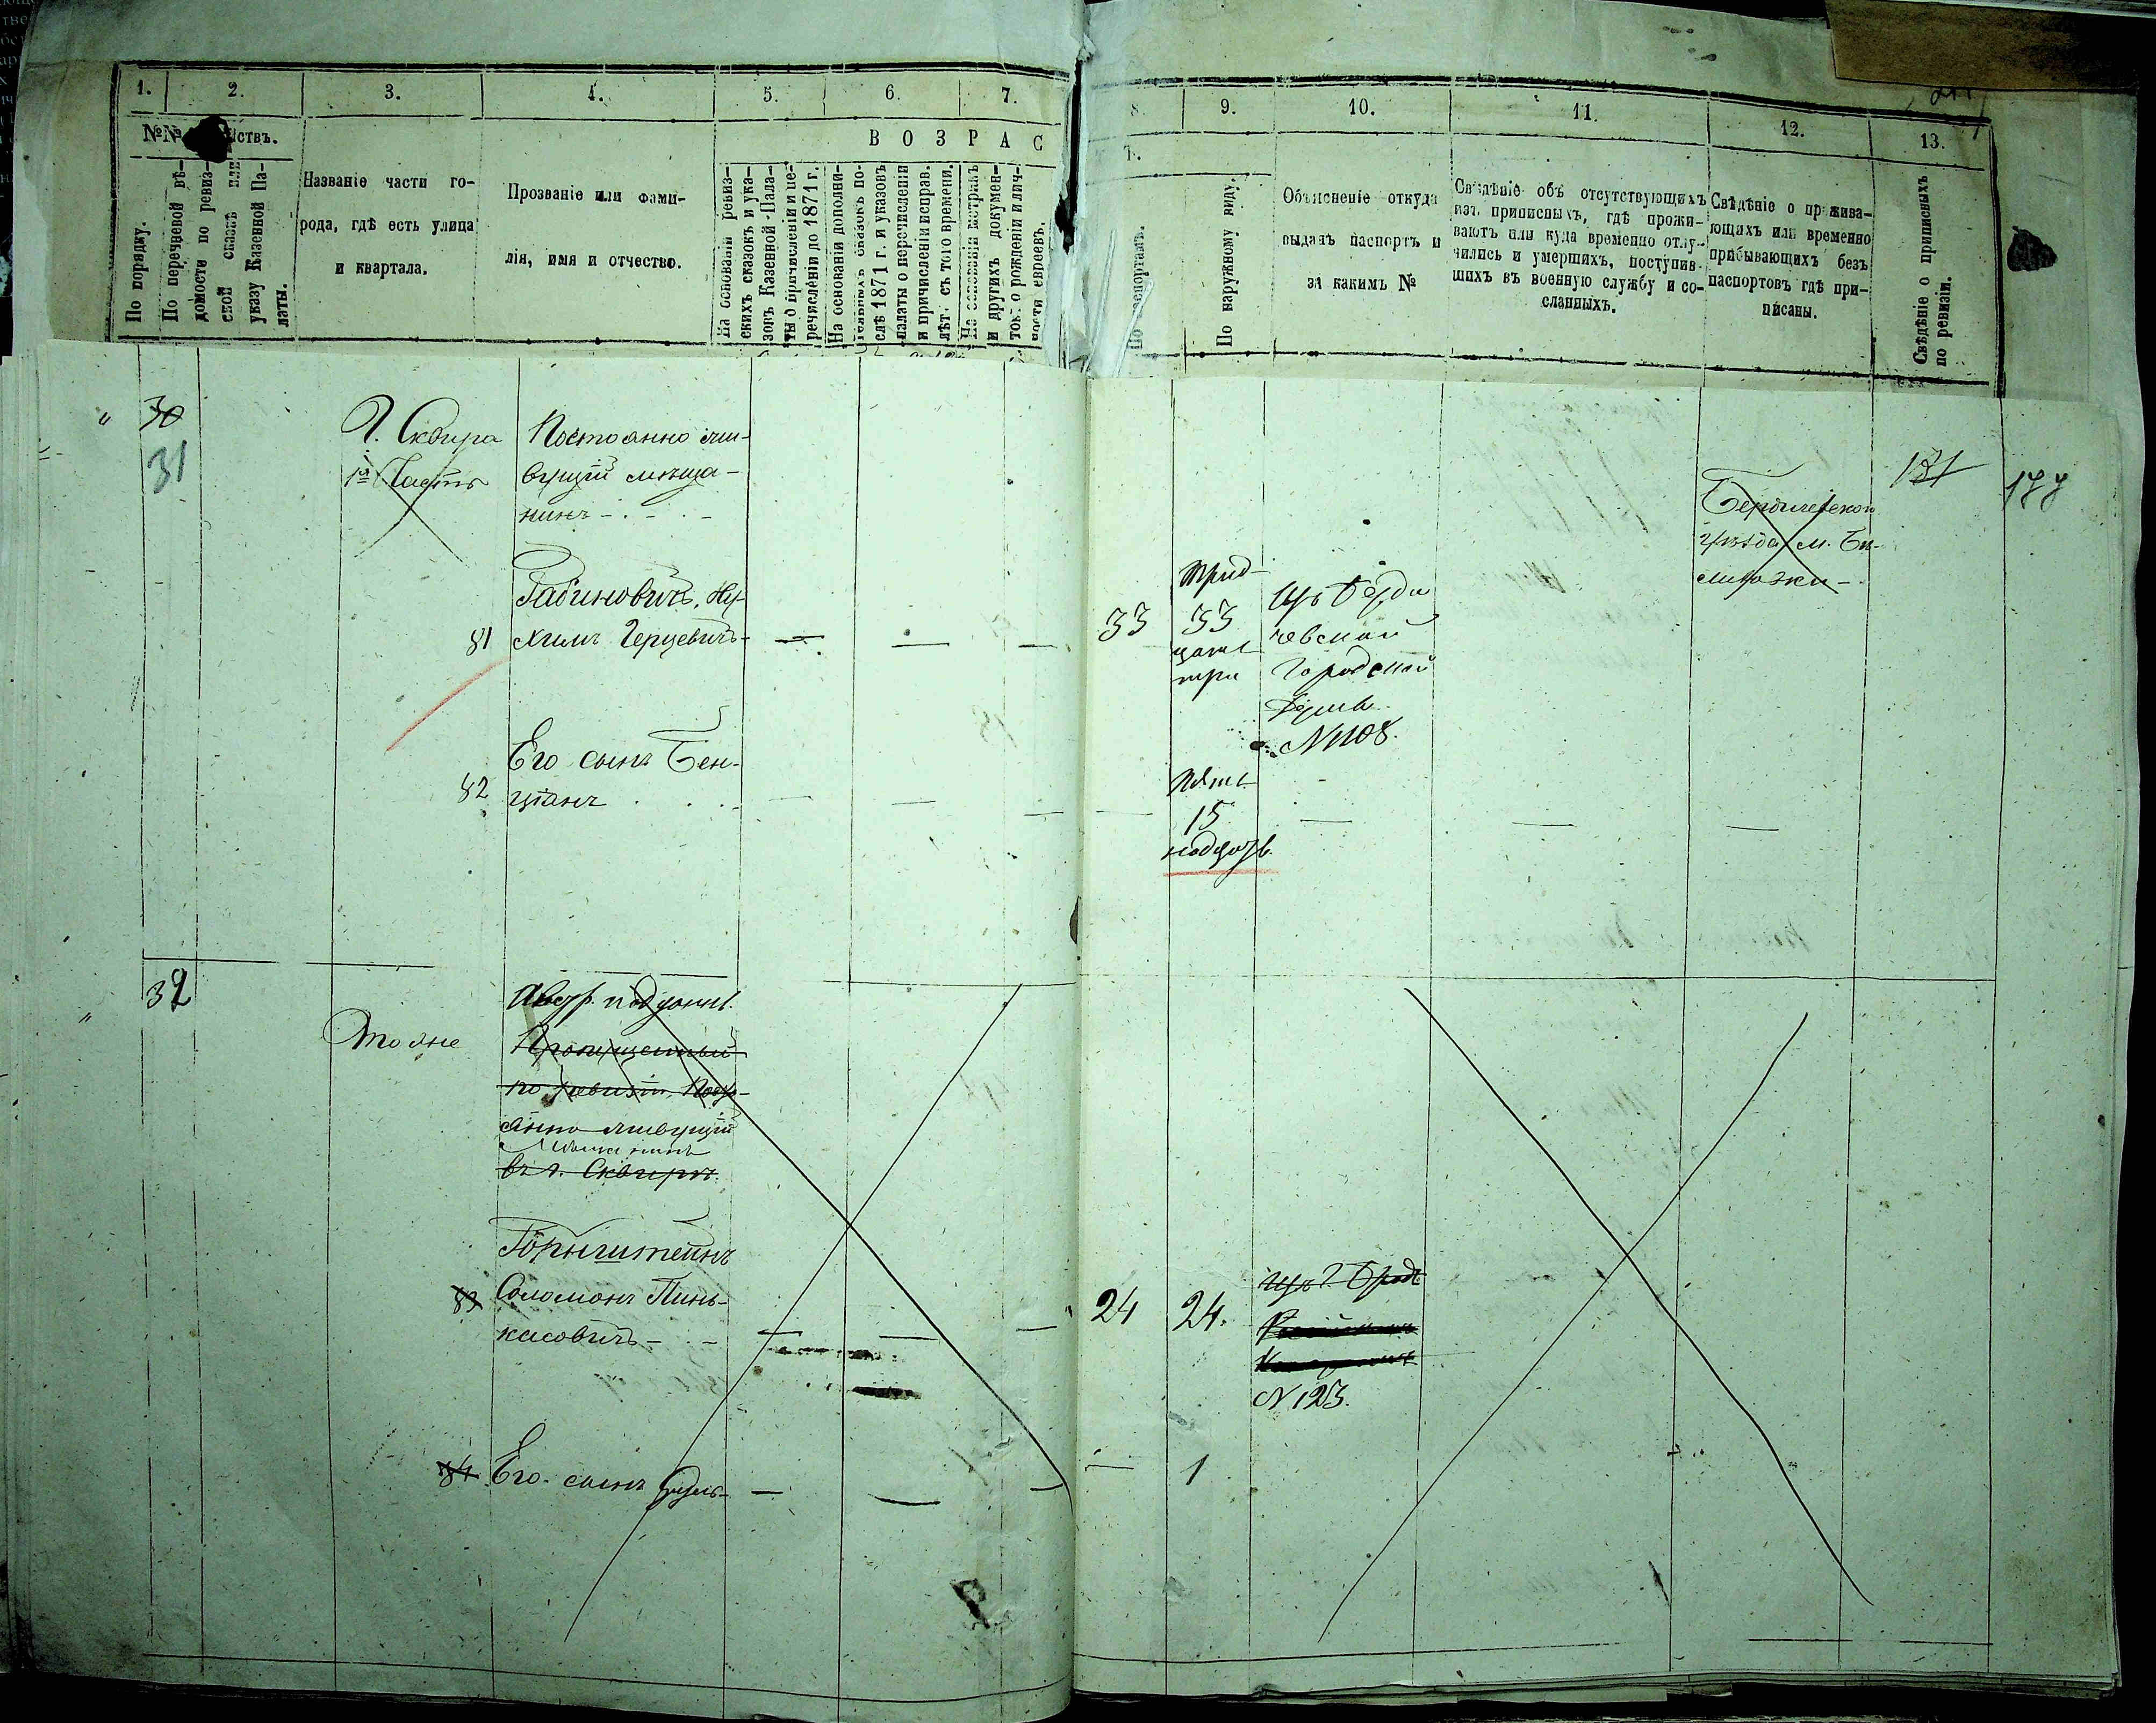 1.
2.
3.
4.
5.
6.
7.
8.
9.
10.
11.
12.
13.
№№
ствъ.
В О З Р А С
Т.
По порядку.
По перечневой вѣ-
домости по ревиз-
ской сказкѣ или
указу Казенной Па-
латы.
Названіе части го-
рода, гдѣ есть улица
и квартала.
Прозваніе или фами-
лія, имя и отчество.
На основаніи ревиз-
скихъ сказокъ и ука-
зовъ Казенной Пала-
ты о причисленіи и пе-
речисленіи до 1871 г.
На основаніи дополни-
тельныхъ сказокъ по-
слѣ 1871 г. и указовъ
палаты о перечисленіи
и причисленіи исправ.
лѣт. съ того времени.
На основаніи метрикъ
и другихъ докумен-
тов. о рожденіи и лич-
ности евреевъ.
По паспортамъ.
По наружному виду.
Объясненіе откуда
выданъ паспортъ и
за какимъ №
Свѣдѣніе объ отсутствующихъ
изъ приписныхъ, гдѣ прожи-
ваютъ или куда временно отлу-
чились и умершихъ, поступив-
шихъ въ военную службу и со-
сланныхъ.
Свѣдѣніе о прожива-
ющихъ или временно
прибывающихъ безъ
паспортовъ гдѣ при-
писаны.
Свѣдѣніе о приписныхъ
по ревизіи.
30
31
Г. Сквира
1я Часть
Постоянно жи-
вущій мѣща-
нинъ
Рабиновичъ, Ну-
81 химъ Герцевичъ
33
Трид
33
цать
три
Изъ Берди
чевской
Городской
Думы
№ 1108.
Бердичевскаго
уѣзда м. Бѣ-
131
177
82
Его сынъ Бен-
ціанъ
Пять
15
надцать
32
Тоже
Австр. подданн.
Пропущенный
по ревизіи Посто-
янно живущій
Мѣщанинъ
въ г. Сквирѣ.
Горнштейнъ
83 Соломонъ Пинь-
касовичъ
24
24.
Изъ г. Бродъ
№ 123.
84 Его сынъ
1